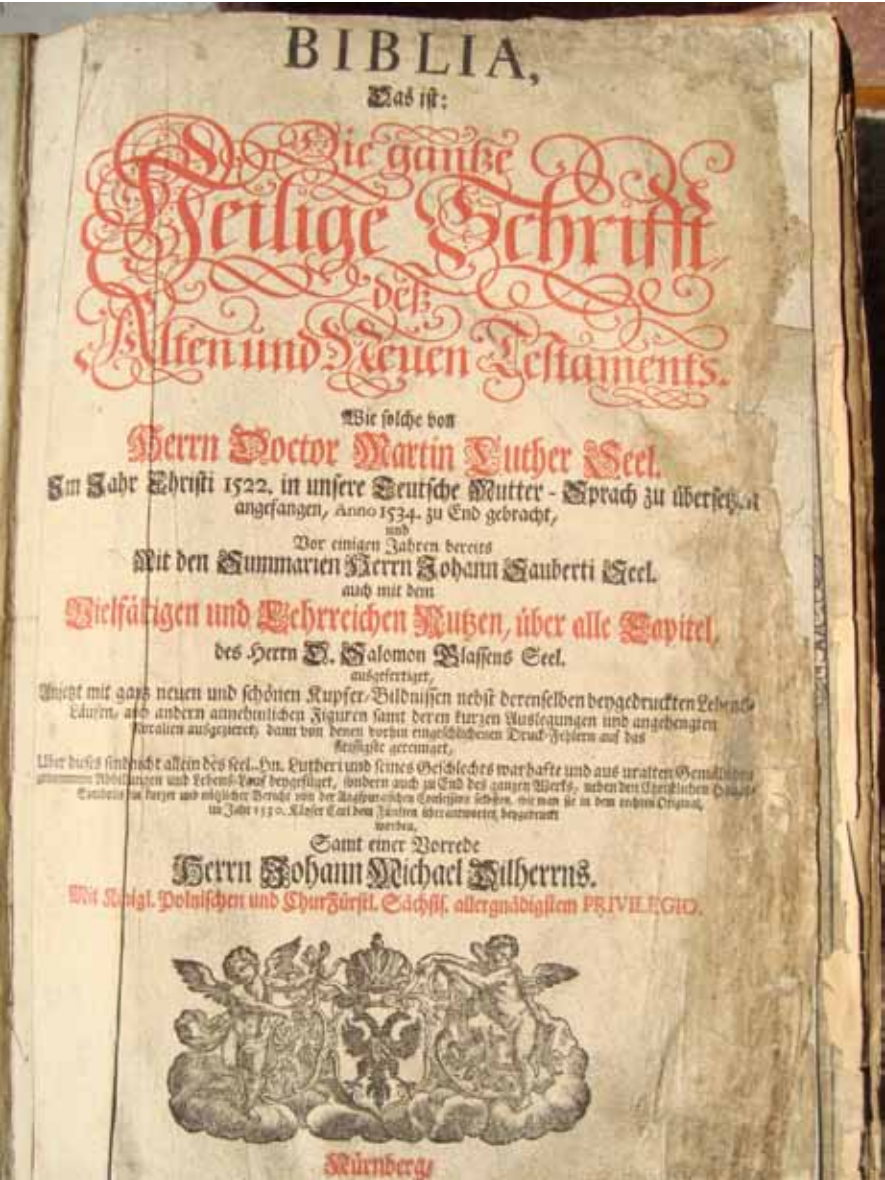 BIBLIA,
Das ist:
Die gantze
Heilige Schrifft,
deß
Alten und Neuen Testaments.
Wie solche von
Herrn Doctor Martin Luther Seel.
Im Jahr Christi 1522. in unsere Teutsche Mutter-Sprach zu übersetzen
angefangen, Anno 1534. zu End gebracht,
und
Vor einigen Jahren bereits
Mit den Summarien Herrn Johann Sauberti Seel.
auch mit dem
Vielfältigen und Lehrreichen Nutzen, über alle Capitel,
des Herrn D. Salomon Glassens Seel.
ausgefertiget,
Anjetzt mit gantz neuen und schönen Kupfer-Bildnissen nebst derenselben beygedruckten Lebens-
Läufen, auch andern annehmlichen Figuren samt deren kurzen Auslegungen und angehengten
Moralien ausgezieret; dann von denen vorhin eingeschlichenen Druck-Fehlern auf das
fleissigste gereiniget,
Uber dieses sind nicht allein des seel. Hn. Lutheri und seines Geschlechts warhafte und aus uralten Gemählden
genommene Abbildungen und Lebens-Lauf beygefüget, sondern auch zu End des ganzen Werks, neben den Christlichen Haupt-
kurzer und nützlicher Bericht von der Augspurgischen Confession selbsten, wie man sie in dem rechten Original,
im Jahr 1530. Käyser Carl dem Fünften überantwortet, beygedruckt
worden,
Samt einer Vorrede
Herrn Johann Michael Dilherrns.
Mit Königl. Polnischen und ChurFürstl. Sächsis. allergnädigstem PRIVILEGIO.
Nürnberg,